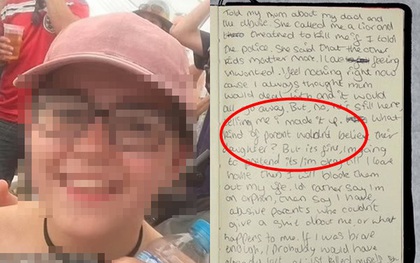 Told my mum about my dad and
the abuse. She called me a liar and
threatned to kill me if I told
the police. She said that the other
kids matter more. I
feeling
unwanted. I feel nothing right now
cause I always thought mum
would deal with and it would
all go away. But, no, he's still here
me I made it up. What
kind of parent wouldnt believe their
daughter? But its fine, im going
to pretend its/im okay till I
then I will block them
out my life. Id rather say I'm
an orphan, then say I have
abusive parents who couldn't
give a shit about me, or what
happens to me. If I was brave
enough, I probably would have
already
killed myself